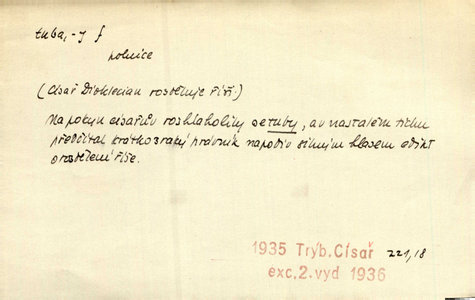 tuba, -y f
polnice
(Císař Dioklecian rozděluje říši.)
Na pokyn císařův rozhlaholily se tuby, a v nastalém tichu
předčítal krátkozraký právník napodiv silným hlasem edikt
o rozdělení říše.
1935 Trýb. Císař 221,18
exc, 2. vyd 1936